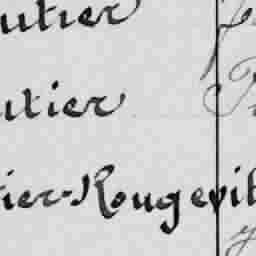 utier
utier
tier-Rougevil